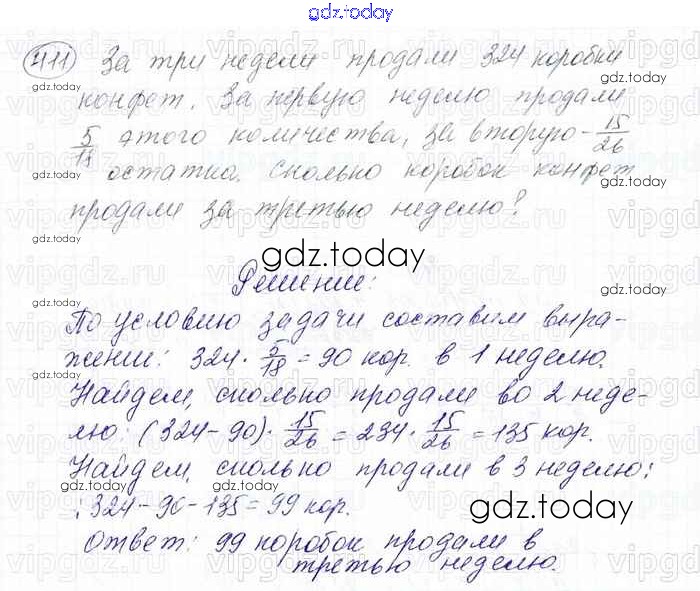 gdz.today
411 За три недели продали 324 коробки
конфет. За первую неделю продали
5/18 этого количества, за вторую - 15/26
остатка. Сколько коробок конфет
продали за третью неделю?
gdz.today
Решение:
По условию задачи составим выра-
жении: 324 · 5/18 = 90 кор. в 1 неделю.
Найдем, сколько продали во 2 неде-
лю: (324 - 90) · 15/26 = 234 · 15/26 = 135 кор.
Найдем, сколько продали в 3 неделю:
: 324 - 90 - 135 = 99 кор.
gdz.today
Ответ: 99 коробок продали в
третью неделю.